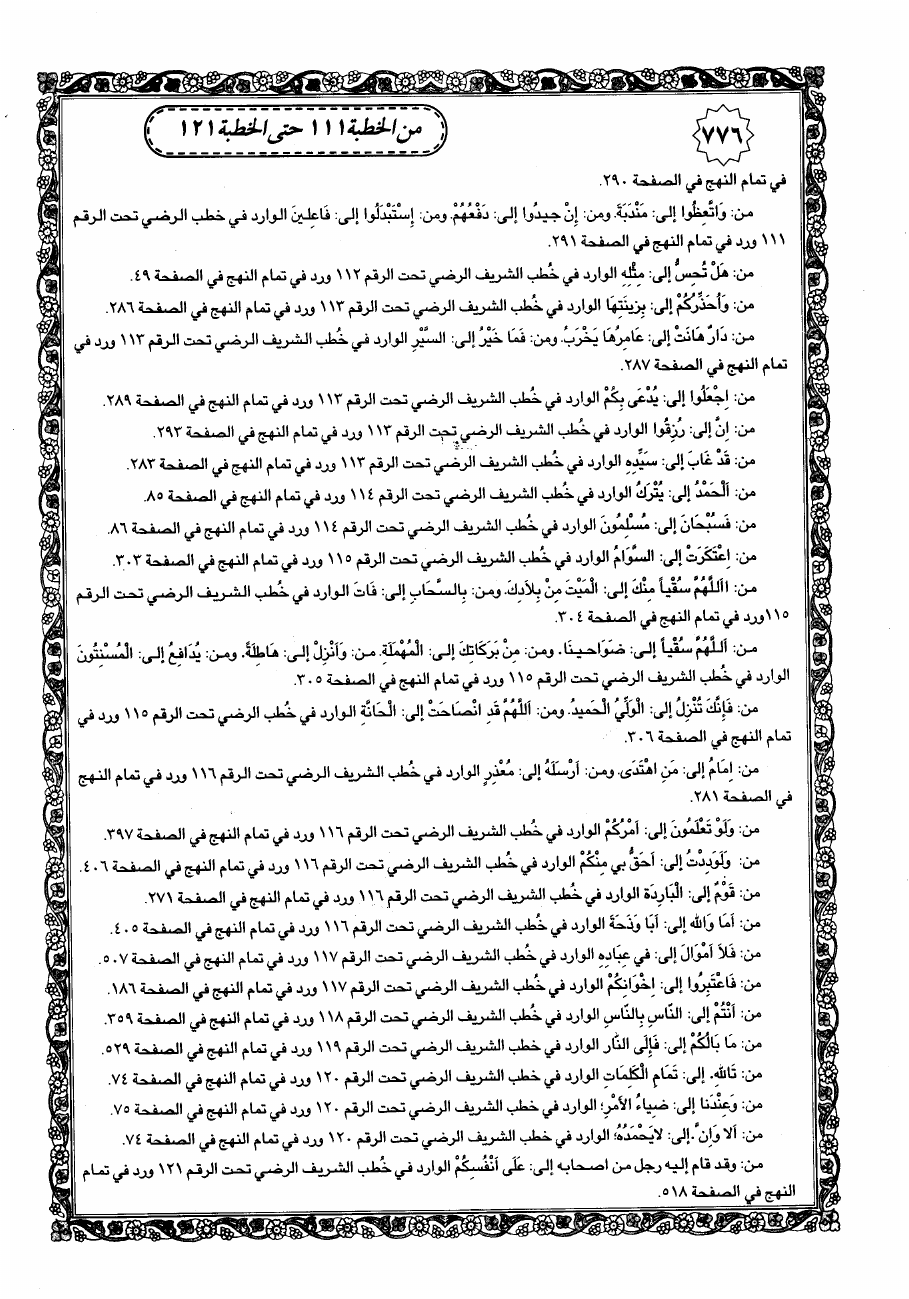 ٧٧٦
من الخطبة ١١١ حتى الخطبة ١٢١
في تمام النهج في الصفحة ٢٩٠.
من: وَاتَّعِظُوا إلى: مَنْدَبَةً. ومن: إنْ جيدُوا إلى: دَفْعُهُمْ. ومن: إسْتَبْدَلُوا إلى: فَاعِلينَ الوارد في خطب الرضي تحت الرقم
١١١ ورد في تمام النهج في الصفحة ٢٩١.
من: هَلْ تُحِسُّ إلى: مِثْلِهِ الوارد في خُطب الشريف الرضي تحت الرقم ١١٢ ورد في تمام النهج في الصفحة ٤٩.
من: وَأُحَذِّرُكُمْ إلى: بِزينَتِهَا الوارد في خُطب الشريف الرضي تحت الرقم ١١٣ ورد في تمام النهج في الصفحة ٢٨٦.
من: دَارٌ هَانَتْ إلى: عَامِرُهَا يَخْرَبُ. ومن: فَمَا خَيْرُ إلى: السَّيْرِ الوارد في خُطب الشريف الرضي تحت الرقم ١١٣ ورد في
تمام النهج في الصفحة ٢٨٧.
من: اِجْعَلُوا إلى: يُدْعَى بِكُمْ الوارد في خُطب الشريف الرضي تحت الرقم ١١٣ ورد في تمام النهج في الصفحة ٢٨٩.
من: اِنَّ إلى: رُزِقُوا الوارد في خُطب الشريف الرضي تحت الرقم ١١٣ ورد في تمام النهج في الصفحة ٢٩٣.
من: قَدْ غَابَ إلى: سَيِّدِهِ الوارد في خُطب الشريف الرضي تحت الرقم ١١٣ ورد في تمام النهج في الصفحة ٢٨٣.
من: اَلْحَمْدُ إلى: يُتْرَكُ الوارد في خُطب الشريف الرضي تحت الرقم ١١٤ ورد في تمام النهج في الصفحة ٨٥.
من: فَسُبْحَانَ إلى: مُسْلِمُونَ الوارد في خُطب الشريف الرضي تحت الرقم ١١٤ ورد في تمام النهج في الصفحة ٨٦.
من: اِعْتَكَرَتْ إلى: السَّوَامُ الوارد في خُطب الشريف الرضي تحت الرقم ١١٥ ورد في تمام النهج في الصفحة ٣٠٣.
من: اَاللَّهُمَّ سُقْياً مِنْكَ إلى: الْمَيْتَ مِنْ بِلَادِكَ. ومن: بِالسَّحَابِ إلى: فَاتَ الوارد في خُطب الشريف الرضي تحت الرقم
١١٥ورد في تمام النهج في الصفحة ٣٠٤.
من: اَللَّهُمَّ سُقْياً إلى: ضَوَاحينَا. ومن: مِنْ بَرَكَاتِكَ إلى: الْمُهْمَلَةِ. من: وَاَنْزِلْ إلى: هَاطِلَةً. ومن: يُدَافِعُ إلى: الْمُسْنِتُونَ
الوارد في خُطب الشريف الرضي تحت الرقم ١١٥ ورد في تمام النهج في الصفحة ٣٠٥.
من: فَاِنَّكَ تُنْزِلُ إلى: الْوَلِيُّ الْحَميدُ. ومن: اَللَّهُمَّ قَدِ انْصَاحَتْ إلى: الْحَانَّةِ الوارد في خُطب الرضي تحت الرقم ١١٥ ورد في
تمام النهج في الصفحة ٣٠٦.
من: اِمَامُ إلى: مَنِ اهْتَدَى. ومن: اَرْسَلَهُ إلى: مُعْذِرٍ الوارد في خُطب الشريف الرضي تحت الرقم ١١٦ ورد في تمام النهج
في الصفحة ٢٨١.
من: وَلَوْ تَعْلَمُونَ إلى: اَمْرُكُمْ الوارد في خُطب الشريف الرضي تحت الرقم ١١٦ ورد في تمام النهج في الصفحة ٣٩٧.
من: وَلَوَدِدْتُ إلى: اَحَقُّ بي مِنْكُمْ الوارد في خُطب الشريف الرضي تحت الرقم ١١٦ ورد في تمام النهج في الصفحة ٤٠٦.
من: قَوْمٌ إلى: الْبَارِدَةِ الوارد في خُطب الشريف الرضي تحت الرقم ١١٦ ورد في تمام النهج في الصفحة ٢٧١.
من: اَمَا وَالله إلى: اَبَا وَذَحَةَ الوارد في خُطب الشريف الرضي تحت الرقم ١١٦ ورد في تمام النهج في الصفحة ٤٠٥.
من: فَلاَ اَمْوَالَ إلى: في عِبَادِهِ الوارد في خُطب الشريف الرضي تحت الرقم ١١٧ ورد في تمام النهج في الصفحة ٥٠٧.
من: فَاعْتَبِرُوا إلى: اِخْوَانِكُمْ الوارد في خُطب الشريف الرضي تحت الرقم ١١٧ ورد في تمام النهج في الصفحة ١٨٦.
من: اَنْتُمْ إلى: النَّاسِ بِالنَّاسِ الوارد في خُطب الشريف الرضي تحت الرقم ١١٨ ورد في تمام النهج في الصفحة ٣٥٩.
من: مَا بَالُكُمْ إلى: فَإلَى النَّار الوارد في خطب الشريف الرضي تحت الرقم ١١٩ ورد في تمام النهج في الصفحة ٥٢٩.
من: تَاللهِ. إلى: تَمَامِ الْكَلِمَاتِ الوارد في خطب الشريف الرضي تحت الرقم ١٢٠ ورد في تمام النهج في الصفحة ٧٤.
من: وَعِنْدَنا إلى: ضِيَاءُ الاَمْرِ؛ الوارد في خطب الشريف الرضي تحت الرقم ١٢٠ ورد في تمام النهج في الصفحة ٧٥.
من: اَلا وَاِنَّ. إلى: لايَحْمَدُهُ؛ الوارد في خطب الشريف الرضي تحت الرقم ١٢٠ ورد في تمام النهج في الصفحة ٧٤.
من: وقد قام إليه رجل من اصحابه إلى: عَلَى اَنْفُسِكُمْ الوارد في خُطب الشريف الرضي تحت الرقم ١٢١ ورد في تمام
النهج في الصفحة ٥١٨.